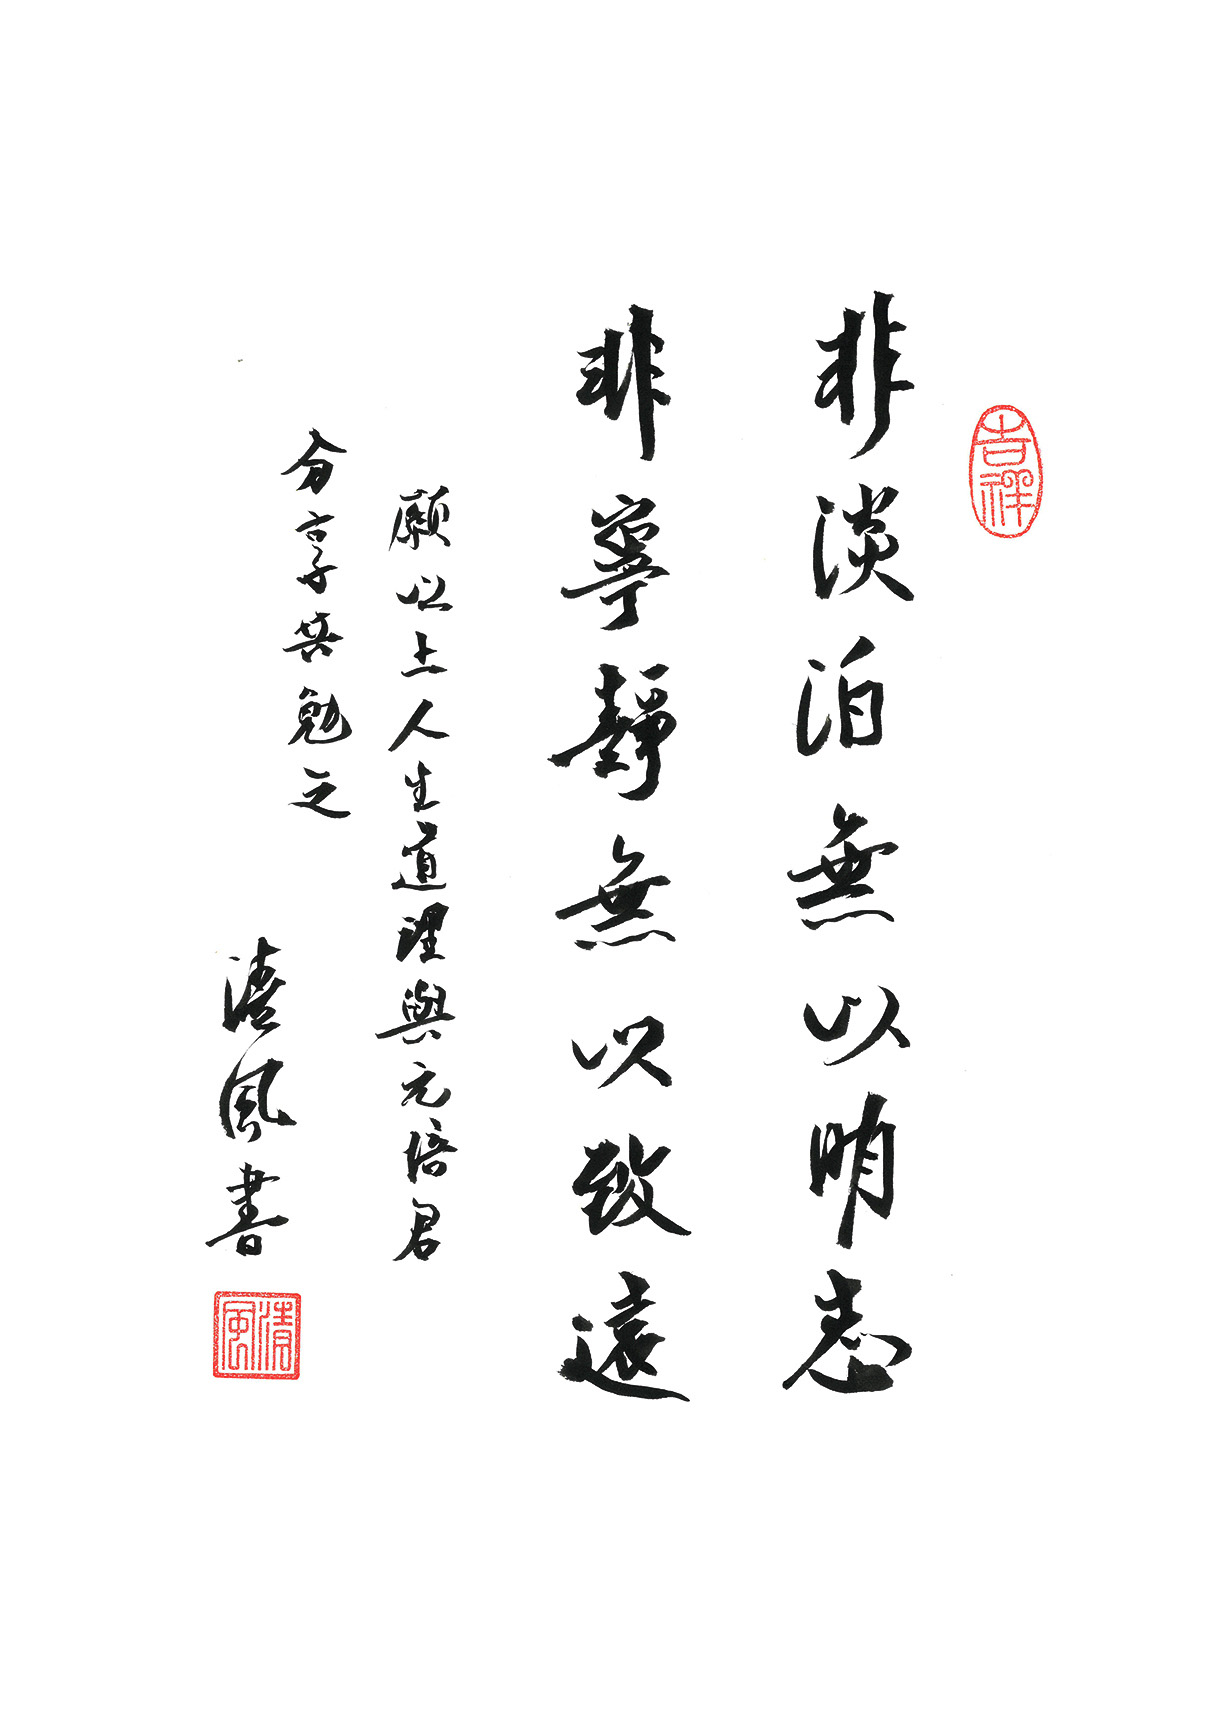 吉祥
非淡泊無以明志
非寧靜無以致遠
願以上人生道理與元培君
分享共勉之
清風書
清風